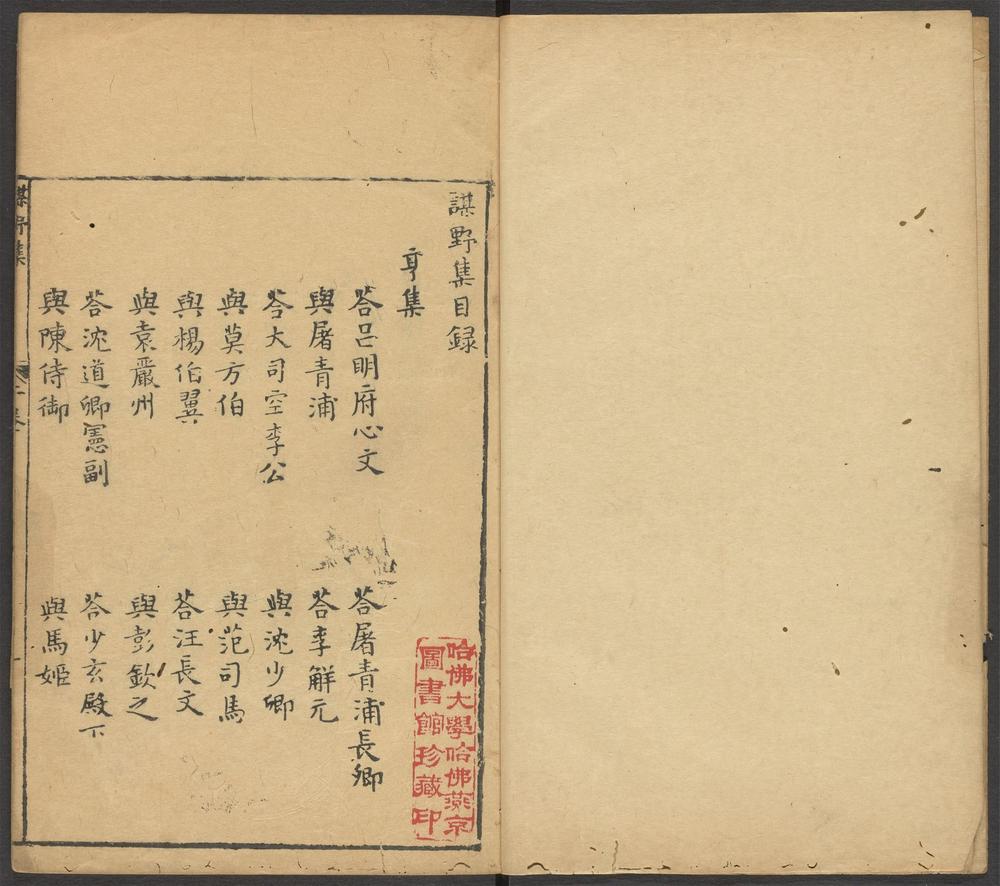 謀野集目録
亨集
荅吕明府心文
荅屠青浦長卿
與屠青浦
荅李解元
荅大司空李公
與沈少卿
與莫方伯
與范司馬
與楊伯翼
荅汪長文
與袁嚴州
與彭欽之
荅沈道卿憲副
荅少玄殿下
與陳侍御
與馬姬
謀野集
哈佛大學哈佛燕京
圖書館珍藏印